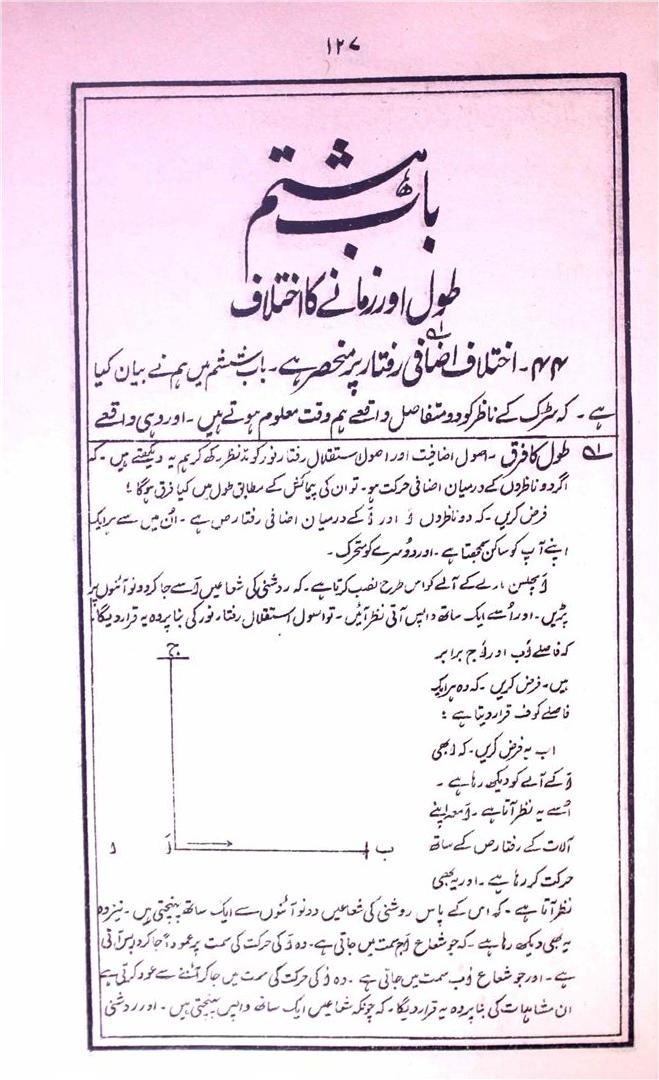 ۱۲۷
باب ہشتم
طول اور زمانے کا اختلاف
۴۴ - اختلاف اضافی رفتار پر منحصر ہے۔ باب ششم میں ہم نے بیان کیا
ہے۔ کہ سڑک کے ناظر کو دو متفاصل واقعے ہم وقت معلوم ہوتے ہیں۔ اور وہی واقعے
طول کا فرق - اصول اضافیت اور اصول استقلال رفتار نور کو مدنظر رکھ کر ہم یہ دیکھتے ہیں۔ کہ
اگر دو ناظروں کے درمیان اضافی حرکت ہو۔ تو ان کی پیمائش کے مطابق طول میں کیا فرق ہوگا؛
فرض کریں۔ کہ دو ناظروں وَ اور دَ کے درمیان اضافی رفتار ص ہے۔ ان میں سے ہر ایک
اپنے آپ کو ساکن سمجھتا ہے۔ اور دوسرے کو متحرک۔
اَ مچلسن مارلے کے آلے کو اس طرح نصب کرتا ہے۔ کہ روشنی کی شعاعیں اَ سے جا کر دونو آئنوں پر
پڑیں۔ اور اُسے ایک ساتھ واپس آتی نظر آئیں۔ تو اصول استقلال رفتار نور کی بنا پر وہ یہ قرار دیگا۔
کہ فاصلے اَب اور اَج برابر
ہیں۔ فرض کریں۔ کہ وہ ہر ایک
فاصلے کو ف قرار دیتا ہے؛
اب یہ فرض کریں۔ کہ ا بھی
اَ کے آلے کو دیکھ رہا ہے۔
اُسے یہ نظر آتا ہے۔ اَ معہ اپنے
آلات کے رفتار ص کے ساتھ
حرکت کر رہا ہے۔ اور یہ بھی
ج
ا
اَ
ب
نظر آتا ہے۔ کہ اس کے پاس روشنی کی شعاعیں دونو آئنوں سے ایک ساتھ پہنچتی ہیں۔ نیز وہ
یہ بھی دیکھ رہا ہے۔ کہ جو شعاع اَج سمت میں جاتی ہے۔ وہ اَ کی حرکت کی سمت پر عموداً جا کر واپس آتی
ہے۔ اور جو شعاع اَب سمت میں جاتی ہے۔ وہ اَ کی حرکت کی سمت میں جا کر آئنے سے عود کرتی ہے
ان مشاہدات کی بنا پر وہ یہ قرار دیگا۔ کہ چونکہ شعاعیں ایک ساتھ واپس پہنچتی ہیں۔ اور روشنی